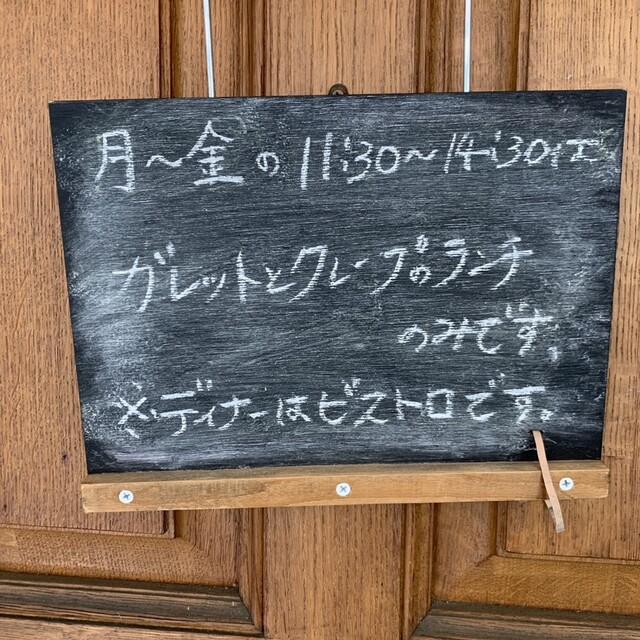 月～金の11:30～14:30は
ガレットとクレープのランチ
のみです。
※ディナーはビストロです。